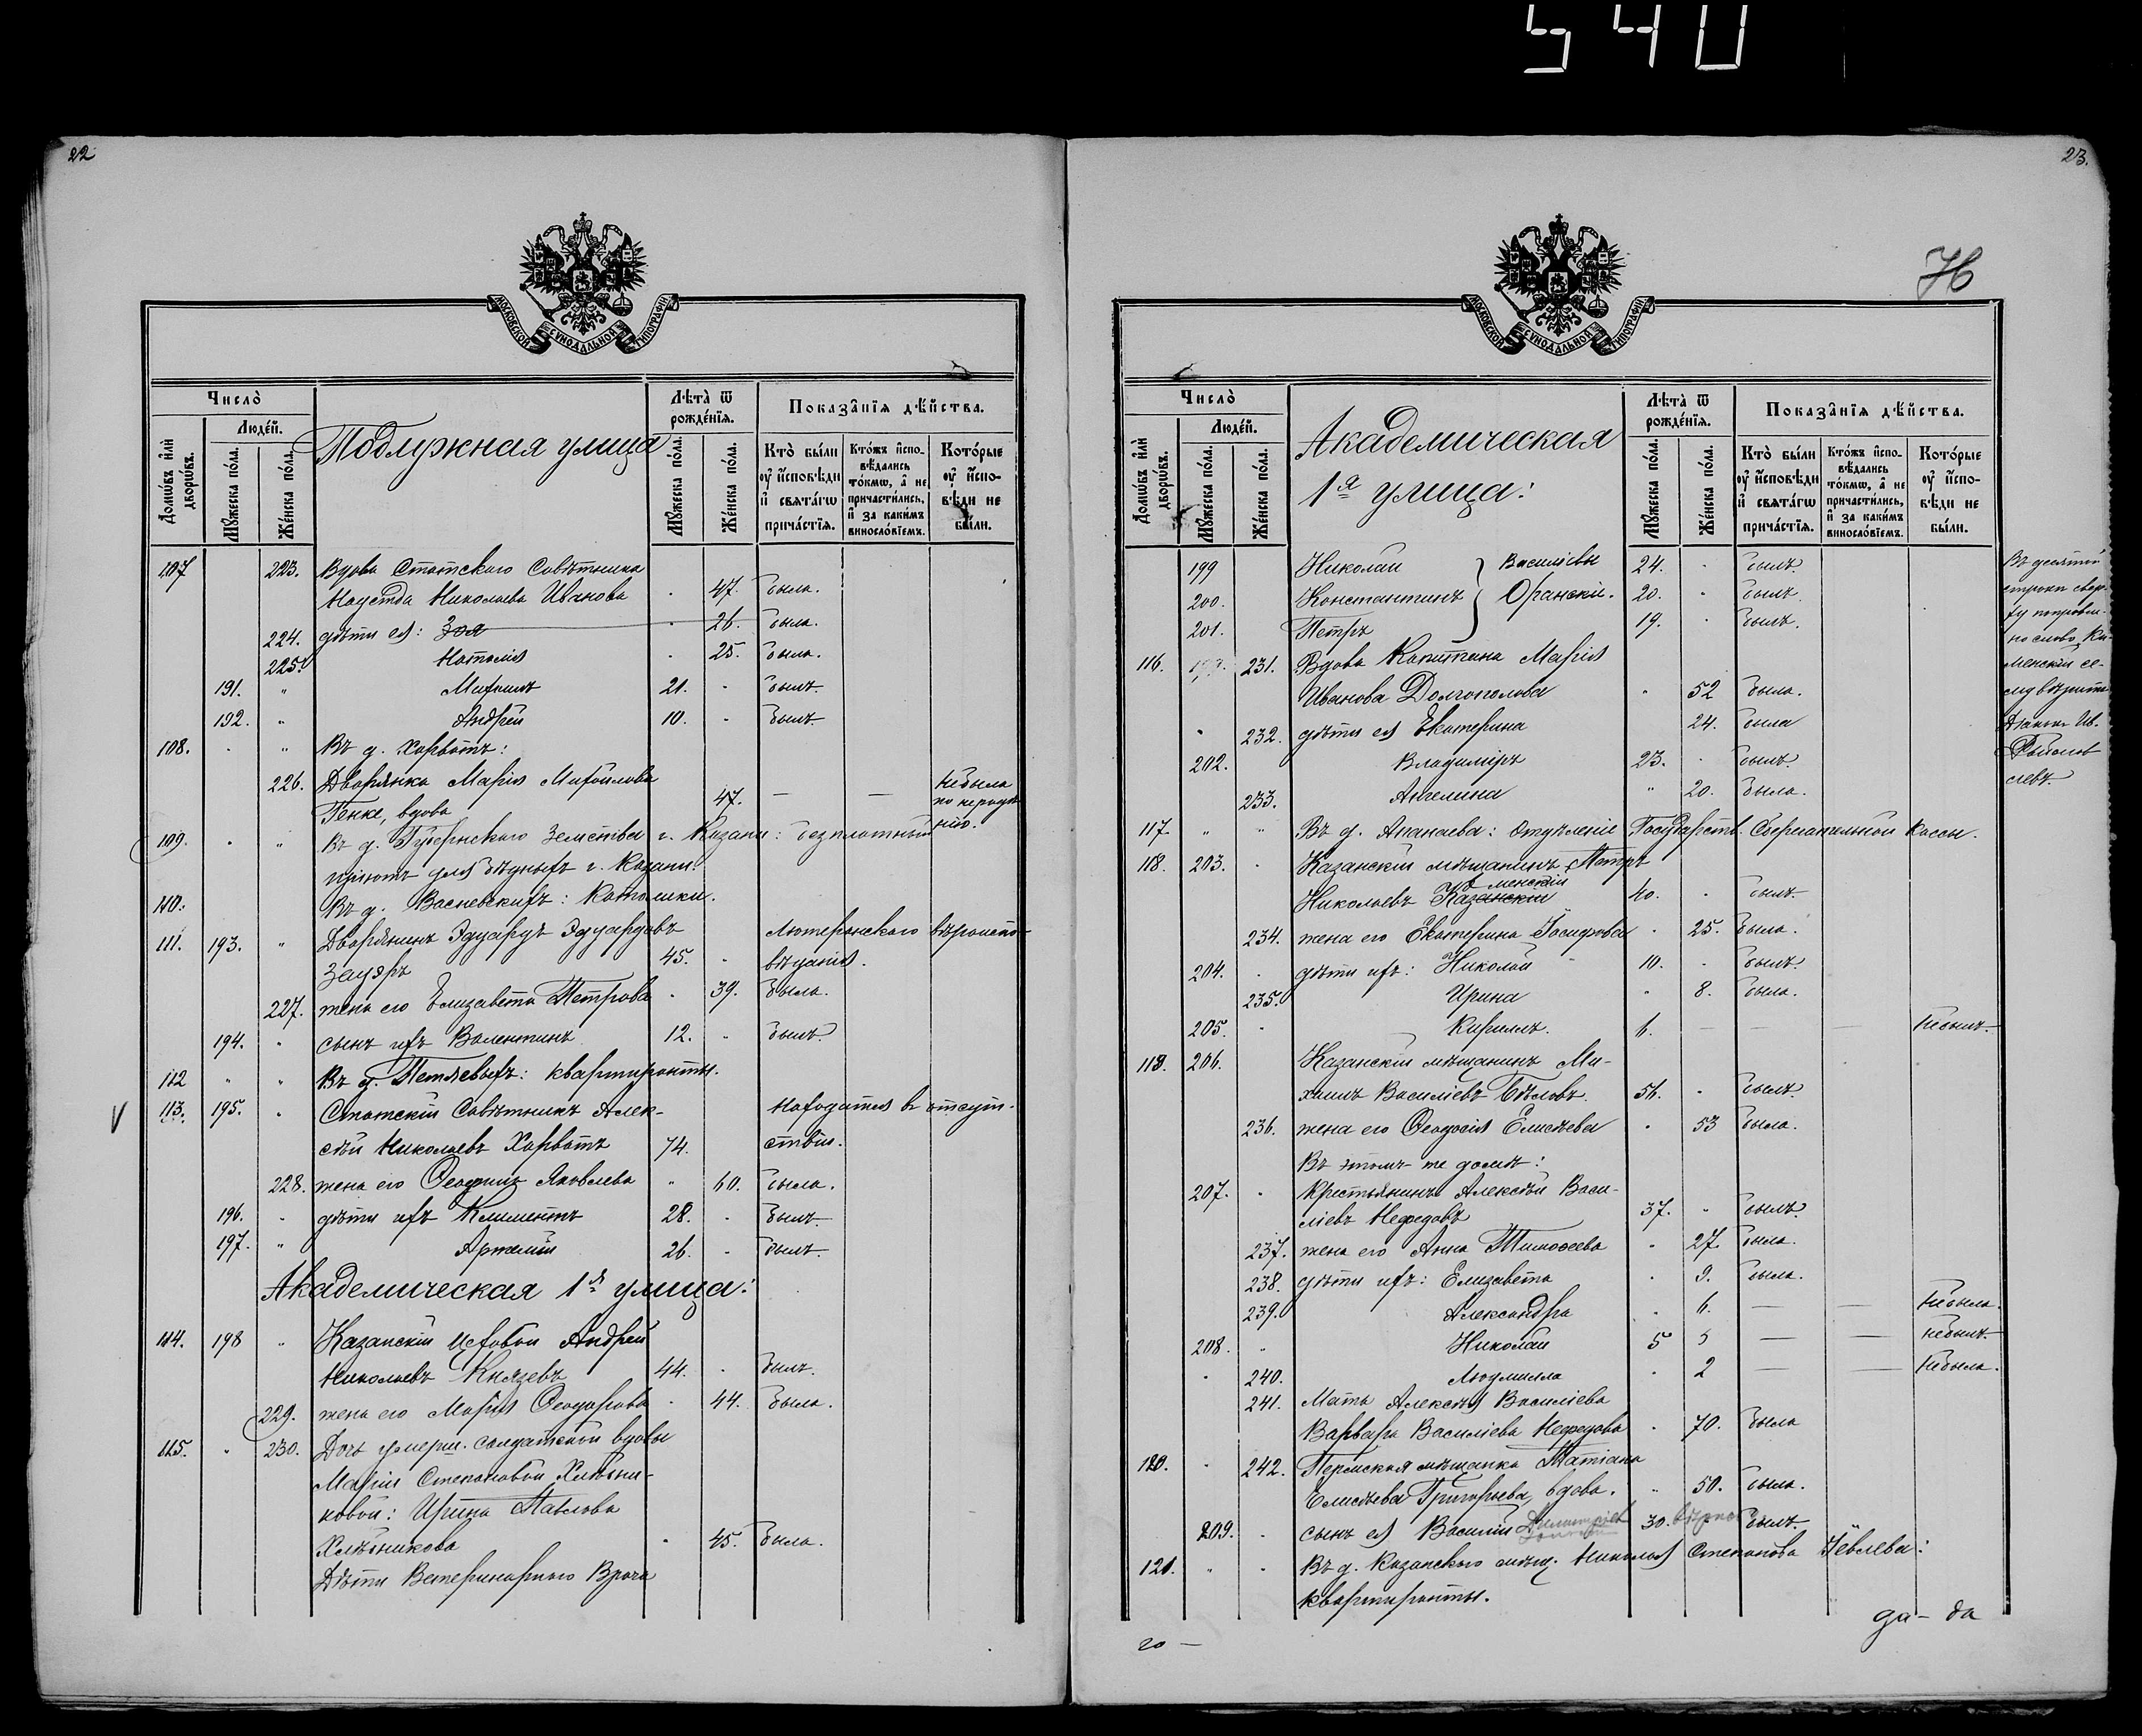 540
22
МОСКОВСКОЙ СѴНОДАЛЬНОЙ ТИПОГРАФІИ
Число̀
Людéй.
Домѡ́въ и҆лѝ дворѡ́въ.
Мꙋ́жеска по́ла.
Же́нска по́ла.
Подлужная улица
Лѣ́та ѿ рождéнїѧ.
Мꙋ́жеска по́ла.
Же́нска по́ла.
Показа̑нїѧ дѣ́йства.
Кто̀ бы́ли ᲂу҆ и҆сповѣ́ди и҆ свѧта́гѡ прича́стїѧ.
Кто́жъ и҆сповѣ́дались то́кмѡ, а҆ не причасти́лись, и҆ за каки́мъ винослѡ́вїемъ.
Кото́рые ᲂу҆ и҆сповѣ́ди не бы́ли.
107 223. Вдова Статскаго Совѣтника
Николаева Иванова 47. была.
224. дѣти ея: Зоя 26. была.
225. Наталія 25. была.
191. " Михаилъ 21. былъ.
192. " Андрей 10. былъ.
108. " Въ д. Харватъ:
226. Дворянка Марія Михайлова Не была
Генке, вдова 47. — — по нерадѣнію.
109. " Въ д. Губернскаго Земства г. Казани: безплатный
пріютъ для бѣдныхъ г. Казани.
110. Въ д. Васневскихъ: Католики.
111. 193. " Дворянинъ Эдуардъ Эдуардовъ Лютеранскаго вѣроиспо-
Зауэръ 45. вѣданія.
227. жена его Елизавета Петрова 39. была.
194. сынъ ихъ Валентинъ 12. былъ.
112 " " Въ д. Петяевыхъ: квартиранты.
V 113. 195. Статскій Совѣтникъ Алек- Находится въ отсут-
сѣй Николаевъ Харватъ 74. ствіи.
228. жена его Яковлева " 60. была.
196. дѣти ихъ Климентъ 28. былъ.
197. " Артемій 26. былъ.
Академическая 1я улица:
114. 198 " Казанскій Цеховой Андрей
Николаевъ Князевъ 44. былъ.
229. жена его Марія Ѳеодорова 44. была.
115. 230. Дочь умерш. солдатской вдовы
Маріи Степановой Хлѣбни-
ковой: Ирина Павлова
Хлѣбникова 45. была.
Дѣти Ветеринарнаго Врача
23.
76
МОСКОВСКОЙ СѴНОДАЛЬНОЙ ТИПОГРАФІИ
Число̀
Людéй.
Домѡ́въ и҆лѝ дворѡ́въ.
Мꙋ́жеска по́ла.
Же́нска по́ла.
Академическая
1я улица:
Лѣ́та ѿ рождéнїѧ.
Мꙋ́жеска по́ла.
Же́нска по́ла.
Показа̑нїѧ дѣ́йства.
Кто̀ бы́ли ᲂу҆ и҆сповѣ́ди и҆ свѧта́гѡ прича́стїѧ.
Кто́жъ и҆сповѣ́дались то́кмѡ, а҆ не причасти́лись, и҆ за каки́мъ винослѡ́вїемъ.
Кото́рые ᲂу҆ и҆сповѣ́ди не бы́ли.
199 Николай } Василіевы 24. былъ.
200. Константинъ } Оранскіе. 20. былъ.
201. Петръ } 19. былъ.
116. 231. Вдова Капитана Марія
Иванова Долгополова 52 была.
232. дѣти ея Екатерина 24. была
202. Владиміръ 23. былъ.
233. Ангелина " 20. была.
117. " " Въ д. Ананаева: Отдѣленіе Государств. Сберегательной Кассы.
118. 203. Казанскій мѣщанинъ Петръ
менскій
Николаевъ Казанскій 40. былъ.
234. жена его Екатерина 25. была.
204. дѣти ихъ: Николай 10. былъ.
235. Ирина " 8. была.
205. Кириллъ. 6. — — — Не былъ.
119. 206. Казанскій мѣщанинъ Ми-
хаилъ Василіевъ Бѣловъ. 56. былъ.
236. жена его Ѳеодосія Елисѣева 53 была.
Въ этомъ-же домѣ:
207. Крестьянинъ Алексѣй Васи-
ліевъ Нефедовъ 37. " былъ.
237. жена его Анна Тимоѳеева 27. была.
238. дѣти ихъ: Елизавета 9. была.
239. Александра 6. — — Не была.
208. " Николай 5 5 — — Не былъ
240. Людмилла 2 — — Не была.
241. Мать Алексѣя Василіева
Варвара Василіева Нефедова 70. была
120. 242. Пермская мѣщанка Татіана
Елисѣева Григорьева, вдова. " 50. была.
209. сынъ ея Василій 30. былъ.
121. " Въ д. Казанскаго мѣщ. Николая Степанова
квартиранты.
Въ десятой
строкѣ сверху
поправле-
но слово „Ка-
менскій“
да - да
го —